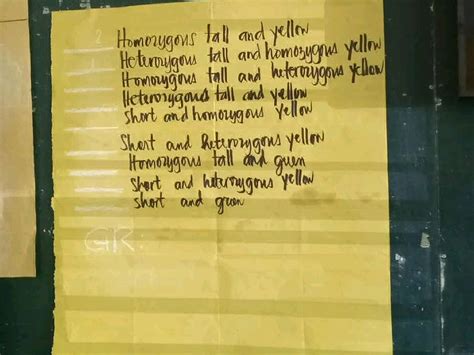 2 Homozygous tall and yellow
1 Heterozygous tall and homozygous yellow
Homozygous tall and heterozygous yellow
Heterozygous tall and yellow
Short and homozygous yellow
Short and heterozygous yellow
Homozygous tall and green
Short and heterozygous yellow
Short and green
GR: